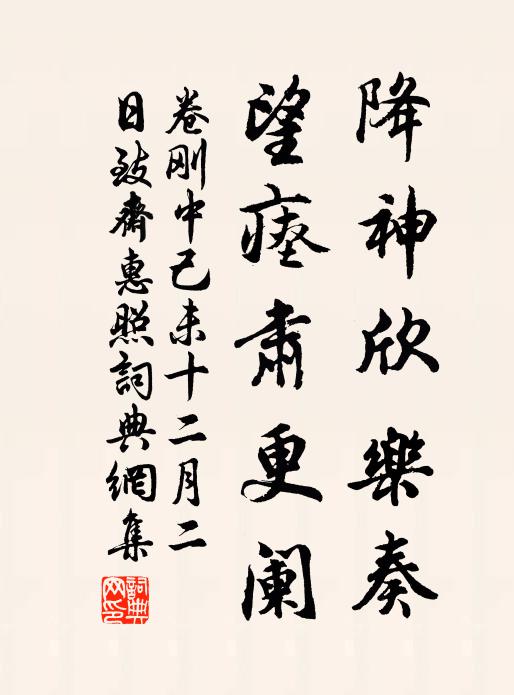 降神欣樂奏
望瘞肅更闌
卷剛中己未十二月二
日致齋惠照詞典網集
詞典網印